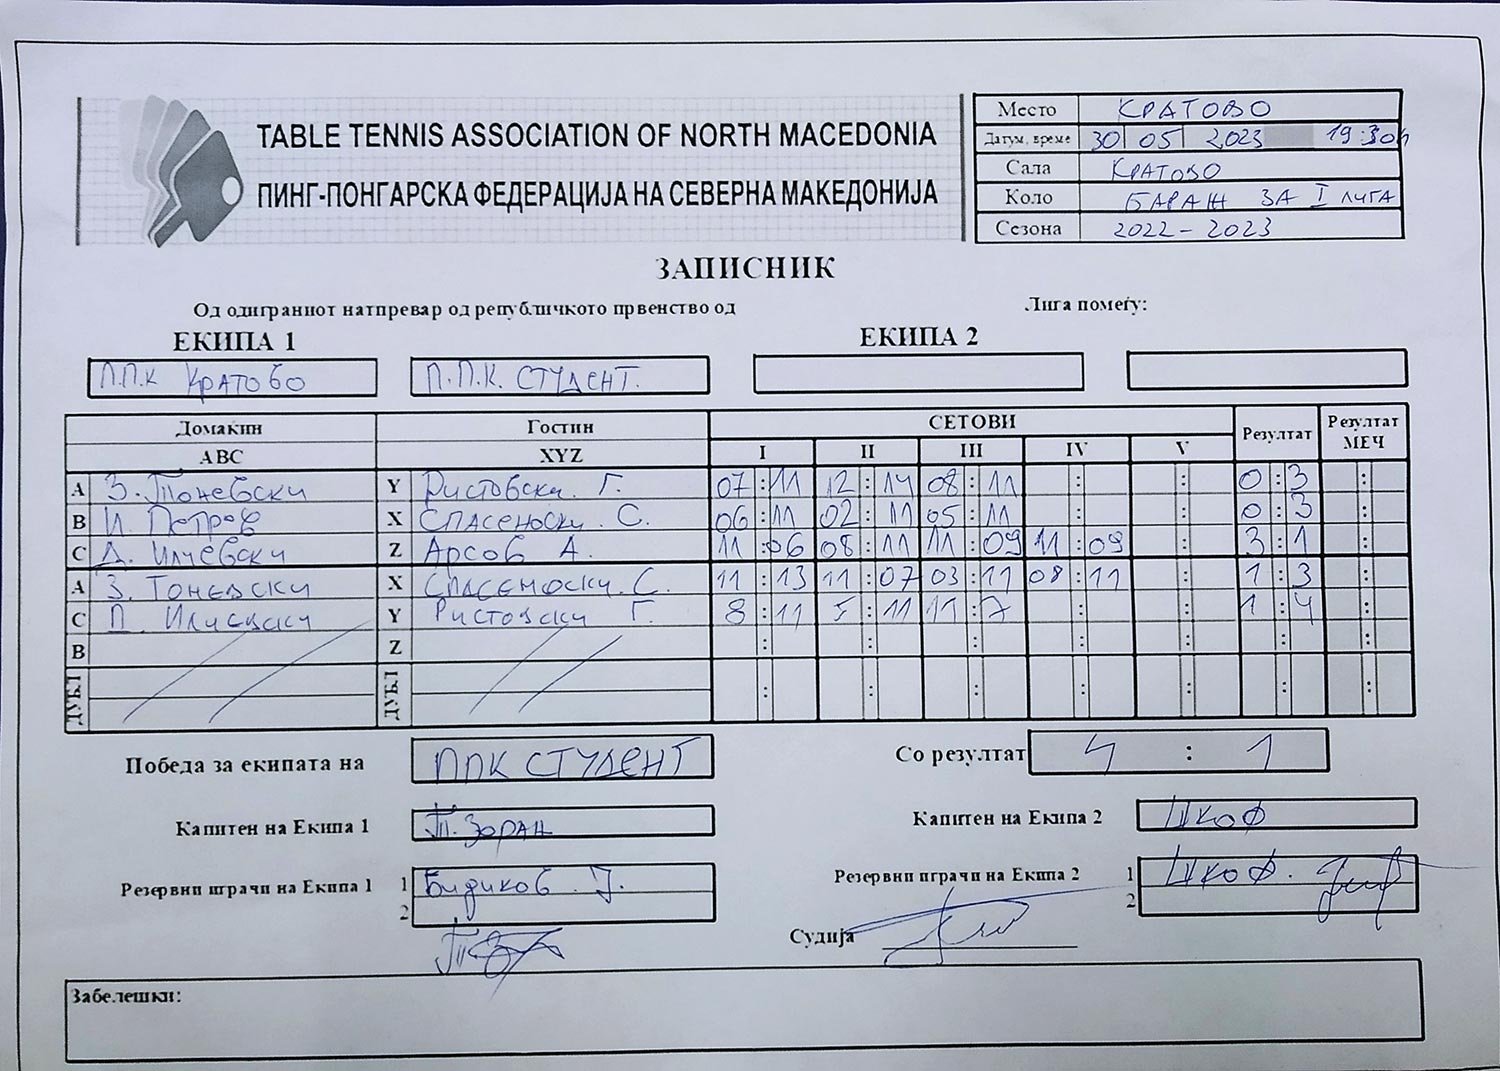 TABLE TENNIS ASSOCIATION OF NORTH MACEDONIA
ПИНГ-ПОНГАРСКА ФЕДЕРАЦИЈА НА СЕВЕРНА МАКЕДОНИЈА
Место КРАТОВО
Датум, време 30 05 2023 19:30h
Сала КРАТОВО
Коло БАРАЖ ЗА I ЛИГА
Сезона 2022-2023
ЗАПИСНИК
Од одиграниот натпревар од републичкото првенство од Лига помеѓу:
ЕКИПА 1 ЕКИПА 2
П.П.К КРАТОВО П.П.К. СТУДЕНТ.
Домакин Гостин СЕТОВИ Резултат Резултат МЕЧ
ABC XYZ I II III IV V
A З. Тоневски Y Ристовски Г. 07:11 12:14 08:11 : : 0:3 :
B И. Петров X Спасеноски С. 06:11 02:11 05:11 : : 0:3 :
C Д. Илиевски Z Арсов А. 11:06 08:11 11:09 11:09 : 3:1 :
A З. Тоневски X Спасеноски С. 11:13 11:07 03:11 08:11 : 1:3 :
C Илиевски Y Ристовски Г. 8:11 5:11 11:7 : : 1:4 :
B Z : : : : : : :
ДУБЛ ДУБЛ : : : : : : :
Победа за екипата на ППК СТУДЕНТ Со резултат 4 : 1
Капитен на Екипа 1 Т. Зоран Капитен на Екипа 2
Резервни играчи на Екипа 1 1 Бидиков Ј. Резервни играчи на Екипа 2 1
2 2
Судија
Забелешки: